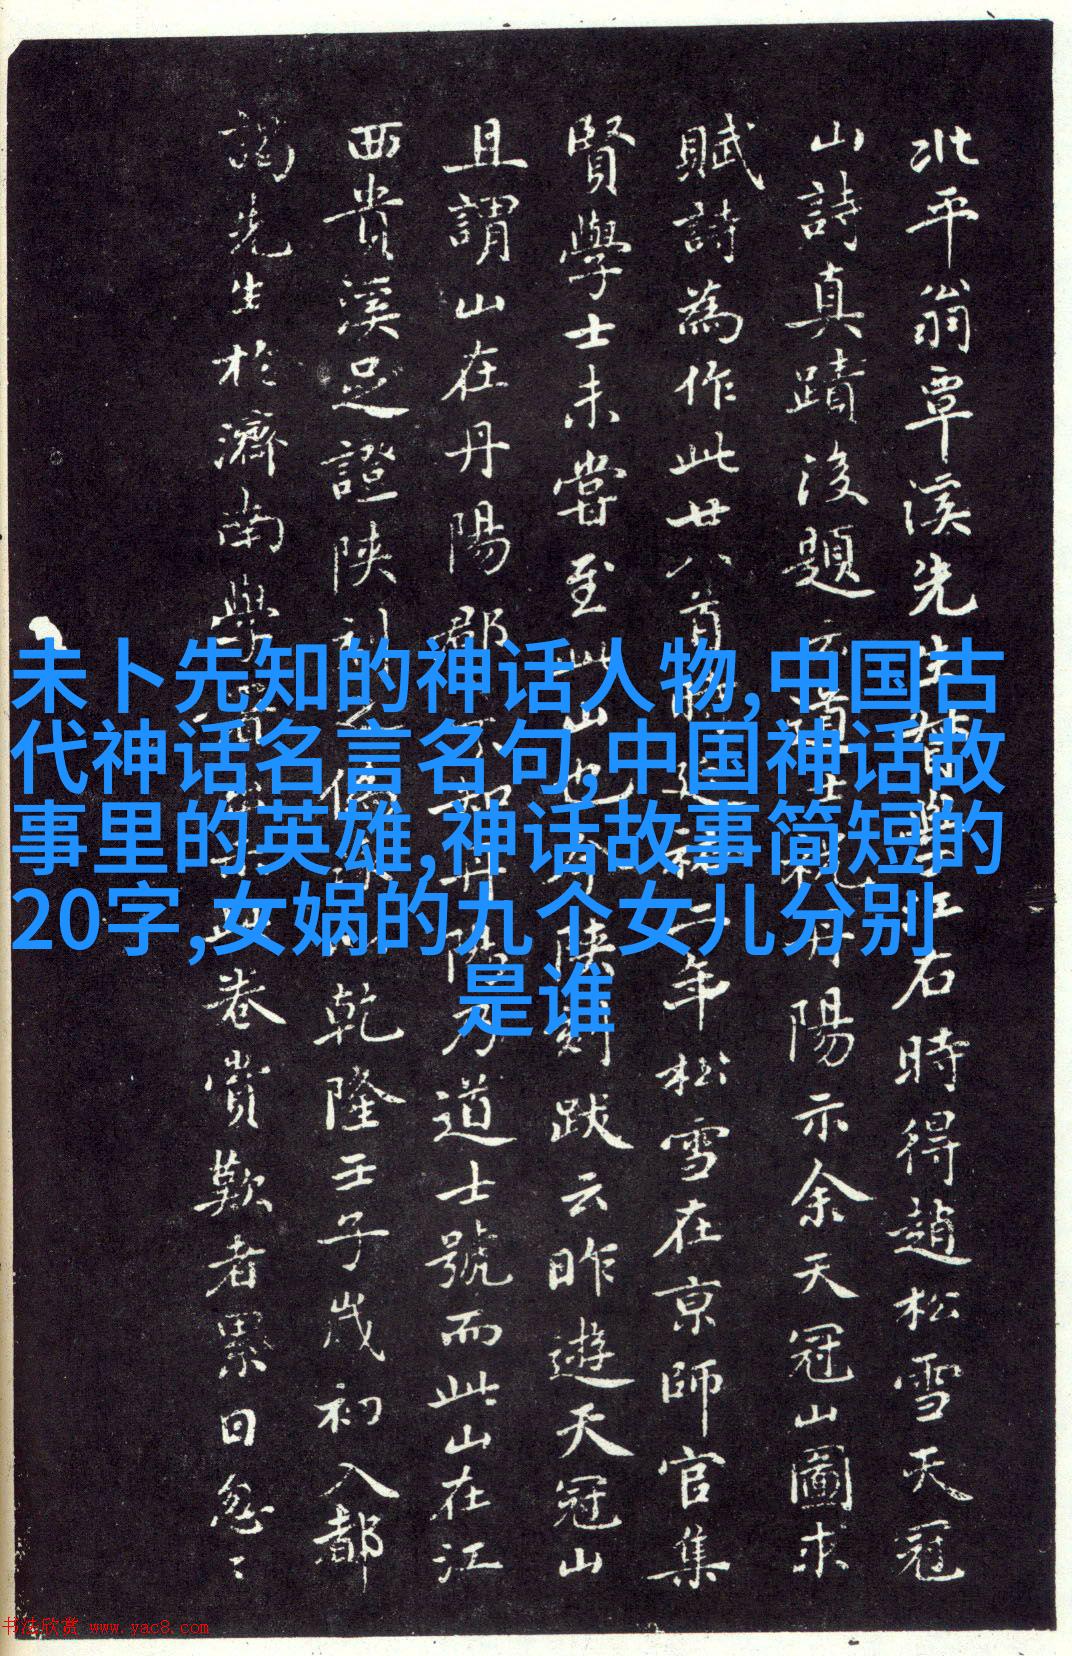 北平翁覃溪先生督學江右時得趙松雪天冠
山詩真蹟後題云道士祝丹陽示余天冠山圖求
賦詩為作此廿八首延祐二年松雪在京師官集
賢學士未嘗至此山也今陝刻跋云昨遊天冠山
且謂山在丹陽郡丹陽乃道士號而此山在江
西貴溪足證陝刻之偽乾隆壬子歲初入都
謁先生於濟南學卷賞歎者累日忽〻
未卜先知的神话人物,中国古
代神话名言名句,中国神话故
事里的英雄,神话故事简短的
20字,女娲的九个女儿分别
是谁
书法欣赏 www.yac8.com